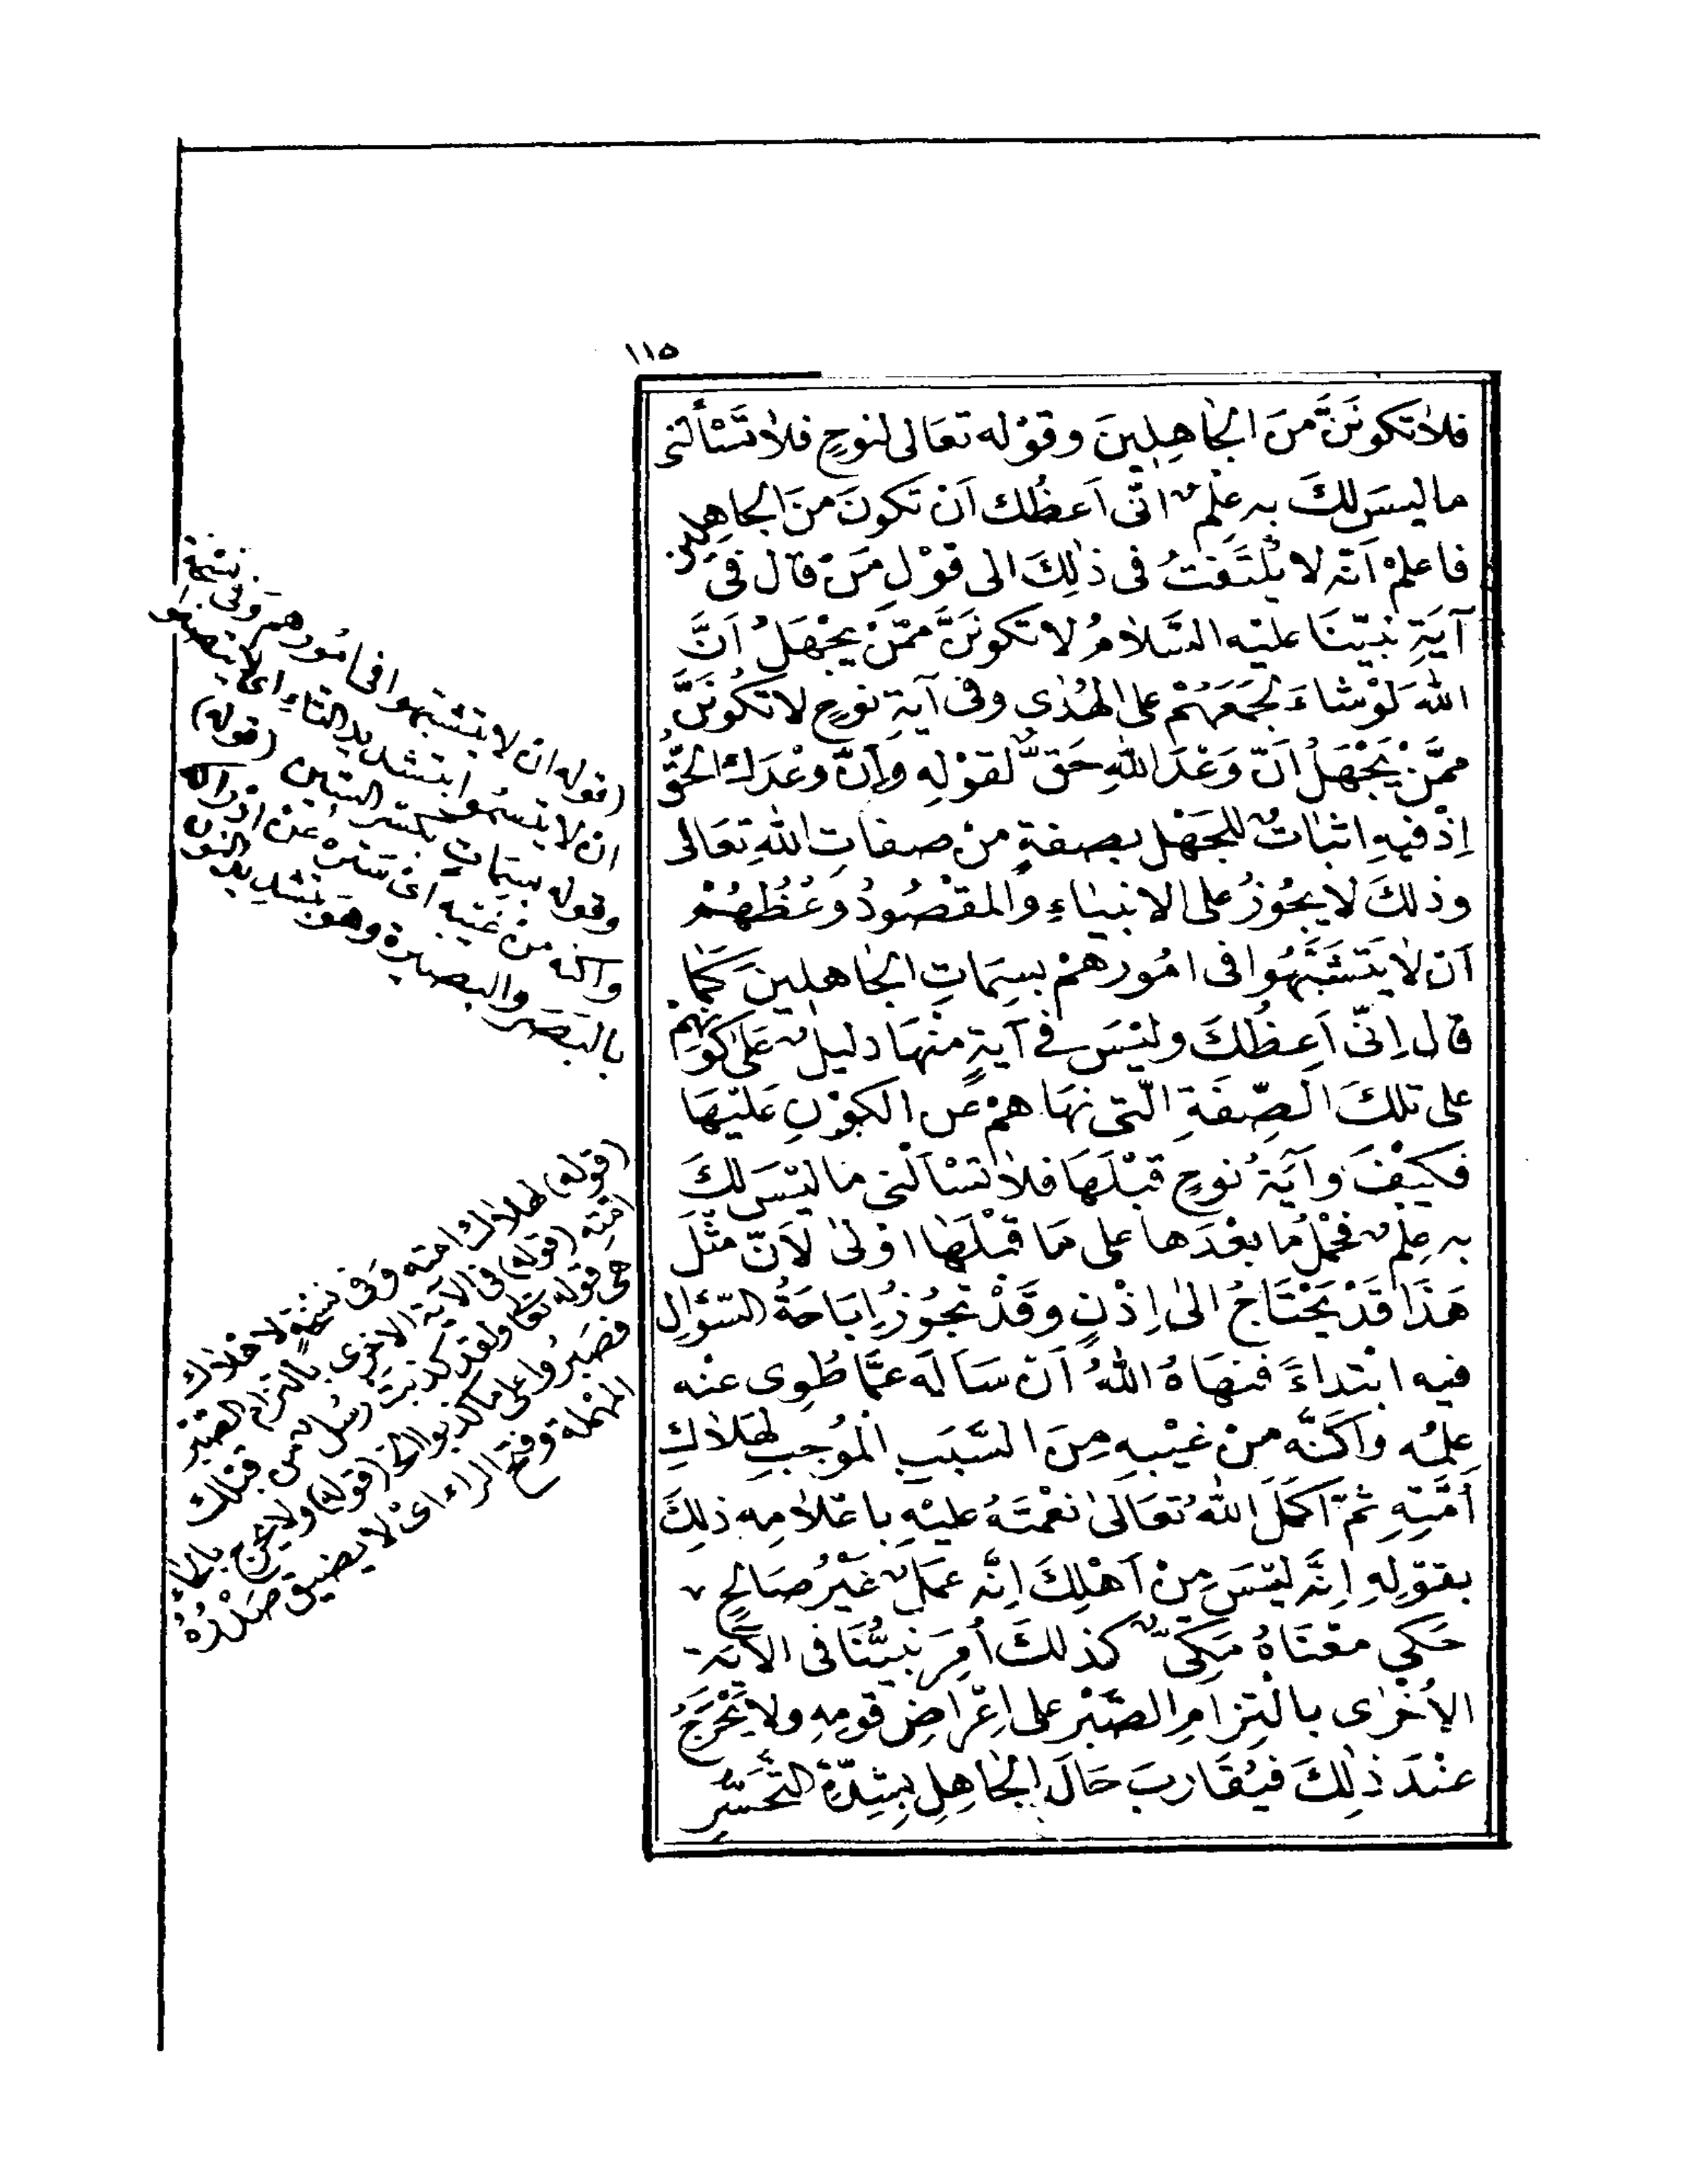 ١١٥
فلاتكونَنَّ مِنَ الجاهِلِينَ وقوْله تعَالى لنوحٍ فلا تَسْألنى
ماليسَ لكَ به عِلْمٌ انّى اَعظُك اَنْ تَكونَ منَ الجاهلين
فاعلمْ اَنّه لا يُلتَفتُ فى ذٰلِكَ الى قوْلِ مَنْ قال فى
آيَةِ نبيّنَا عليْه السَّلامُ لا تكونَنَّ ممّنْ يجْهَلُ اَنَّ
اللهَ لَوْشاءَ لجمَعَهُمْ على الهُدٰى وفى آيةِ نوحٍ لا تكُونَنَّ
ممَّنْ يَجْهَلُ اَنّ وَعْدَ اللهِ حَقٌّ لقوْلِه وإنَّ وعْدَكَ الحَقُّ
اِذْ فيهِ اثباتٌ للجَهْل بصفةٍ منْ صفاتِ اللهِ تعَالى
وذلكَ لا يجُوزُ على الانبياءِ والمقْصُودُ وعْظُهُمْ
اَن لا يَتَشَبَّهُوا فى امُورهمْ بسِمَاتِ الجاهلينَ كَمَا
قال اِنّى اَعِظُكَ وليْسَ فى آيةٍ منْهَا دليلٌ عَلى كونهِمْ
على تلكَ الصِّفَةِ الّتى نَهَاهمْ عن الكوْنِ عَليْهَا
فكيْفَ وآيَةُ نوحٍ قبْلَهَا فلا تسْألْنى مَا ليْسَ لكَ
به عِلمٌ فحَمْلُ مَا بعْدَها على مَا قَبْلَهَا اوْلىٰ لاَنّ مثْلَ
هَذَا قَدْ يَحْتَاجُ الىٰ اِذْنٍ وقَدْ تجُوزُ اِبَاحَةُ السّؤالِ
فيه ابْتداءً فنهَاهُ اللهُ اَن سَألَه عمَّا طُوِى عنْه
علمُه واَكنَّه منْ غيْبِه مِنَ السَّبَبِ الْمُوجِبِ لهَلاكِ
اُمّتِهِ ثمّ اَكمَلَ اللهُ تعَالىٰ نعْمَتَهُ عليْهِ باعْلامِه ذلِكَ
بقوْلِهِ اِنَّه ليْسَ مِنْ اَهْلِكَ اِنَّه عمَلٌ غيْرُ صَالحٍ
حَكى معْنَاهُ مَكّىٌّ كذلكَ اُمِرَ نبيُّنَا فى الآيَةِ
الاُخْرٰى بالْتِزامِ الصَّبْرِ على اِعْرَاضِ قومِهِ ولا يَحْرَجُ
عنْدَ ذٰلِكَ فيُقَاربَ حَالَ الجاهِلِ بشِدّةِ التَّحَسُّرِ
(قوله ان لا يتشبهوا فى امُورهمْ وفى نسْخة
ان لا يتسمُوا بتشديد التاء اى لا يتصفوا
وقوله بسِمات بكسْر السّين (قوله)
واكنه منْ غيْبِه اى ستره عَنْ ادْراكه
بالبَصَر والبصيرة وهو بتشديد النون
(قوله) لهلاك امته وَفى نسْخةٍ لاهْلاك
امّته (قوله) فى الآية الاخرى بالتزام الصّبْر
هى قوله تعَا ولقدْ كذبتْ رُسُلٌ منْ قبْلك
فصَبَرُوا على مَا كذبوا الخ (قوله) ولا يحْرج بالحاء
المهْملة وفتح الراء اىْ لا يضيق صَدْرُهُ